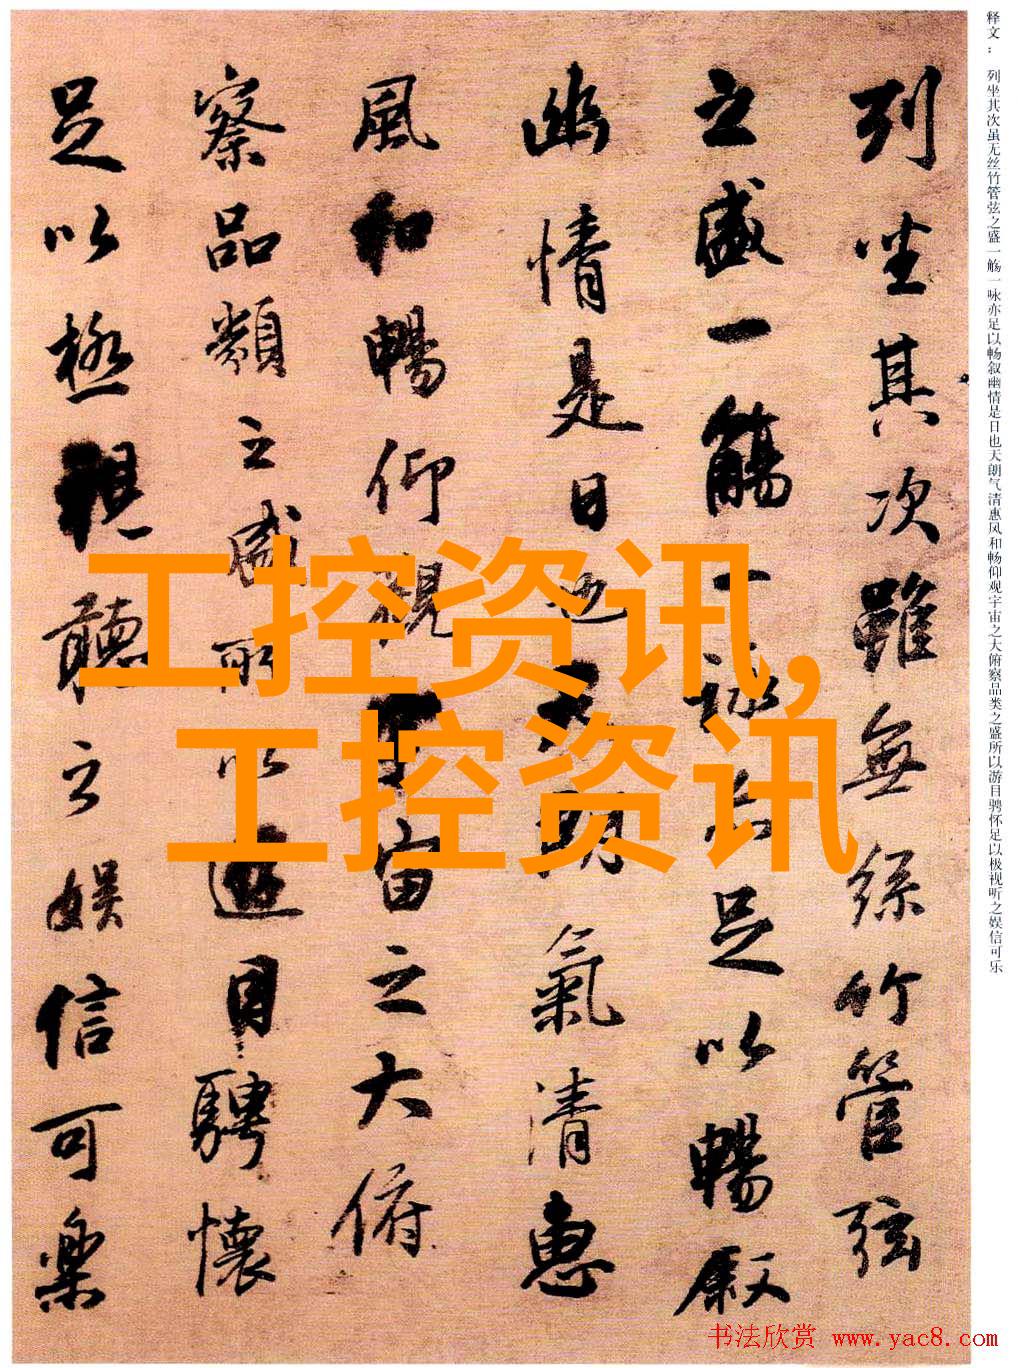 释文： 列坐其次虽无丝竹管弦之盛一觞一咏亦足以畅叙幽情是日也天朗气清惠风和畅仰观宇宙之大俯察品类之盛所以游目骋怀足以极视听之娱信可乐
列坐其次雖無絲竹管弦
之盛一觴一詠亦足以暢叙
幽情是日也天朗氣清惠
風和暢仰觀宇宙之大俯
察品類之盛所以遊目騁懷
足以極視聽之娱信可樂
工控资讯,
工控资讯
书法欣赏 www.yac8.com